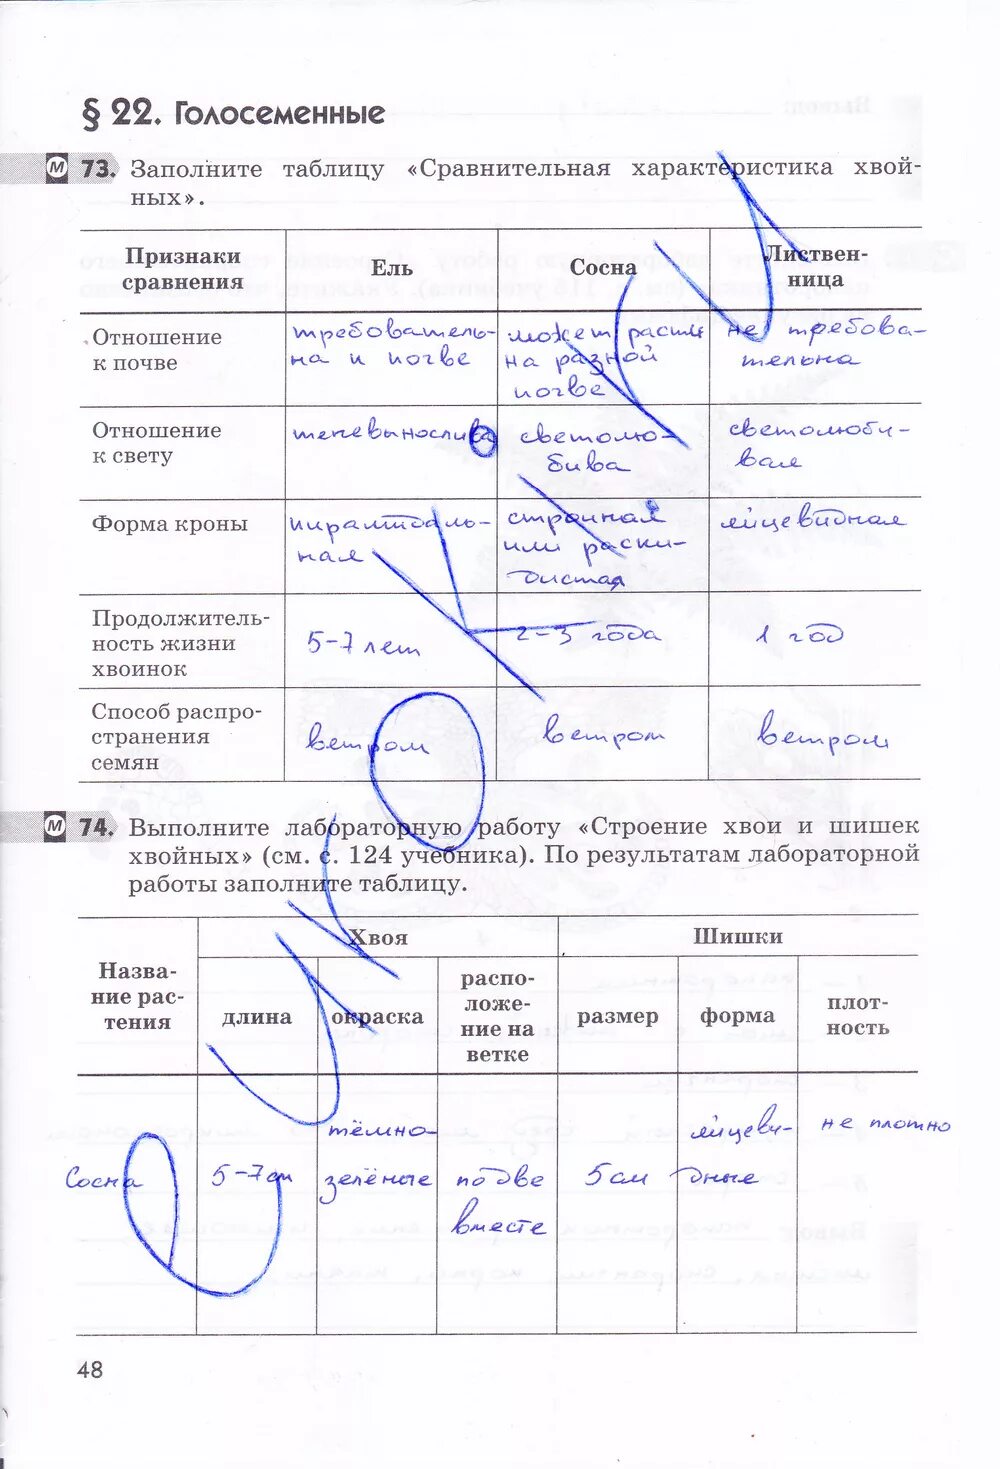 § 22. Голосеменные
М 73. Заполните таблицу «Сравнительная характеристика хвой-
ных».
Признаки сравнения | Ель | Сосна | Листвен-
ница
Отношение к почве | требователь-
на и почве | может расти
на разной
почве | не требова-
тельна
Отношение к свету | теневынослива | светолю-
бива | светолюби-
вая
Форма кроны | пирамидаль-
ная | стройная
или раски-
дистая | яйцевидная
Продолжитель-
ность жизни
хвоинок | 5-7 лет | 2-3 года | 1 год
Способ распро-
странения
семян | ветром | ветром | ветром
М 74. Выполните лабораторную работу «Строение хвои и шишек
хвойных» (см. с. 124 учебника). По результатам лабораторной
работы заполните таблицу.
Назва-
ние рас-
тения | Хвоя | Шишки
длина | окраска | распо-
ложе-
ние на
ветке | размер | форма | плот-
ность
Сосна | 5-7см | тёмно-
зелёные | по две
вместе | 5см | яйцеви-
дные | не плотно
48